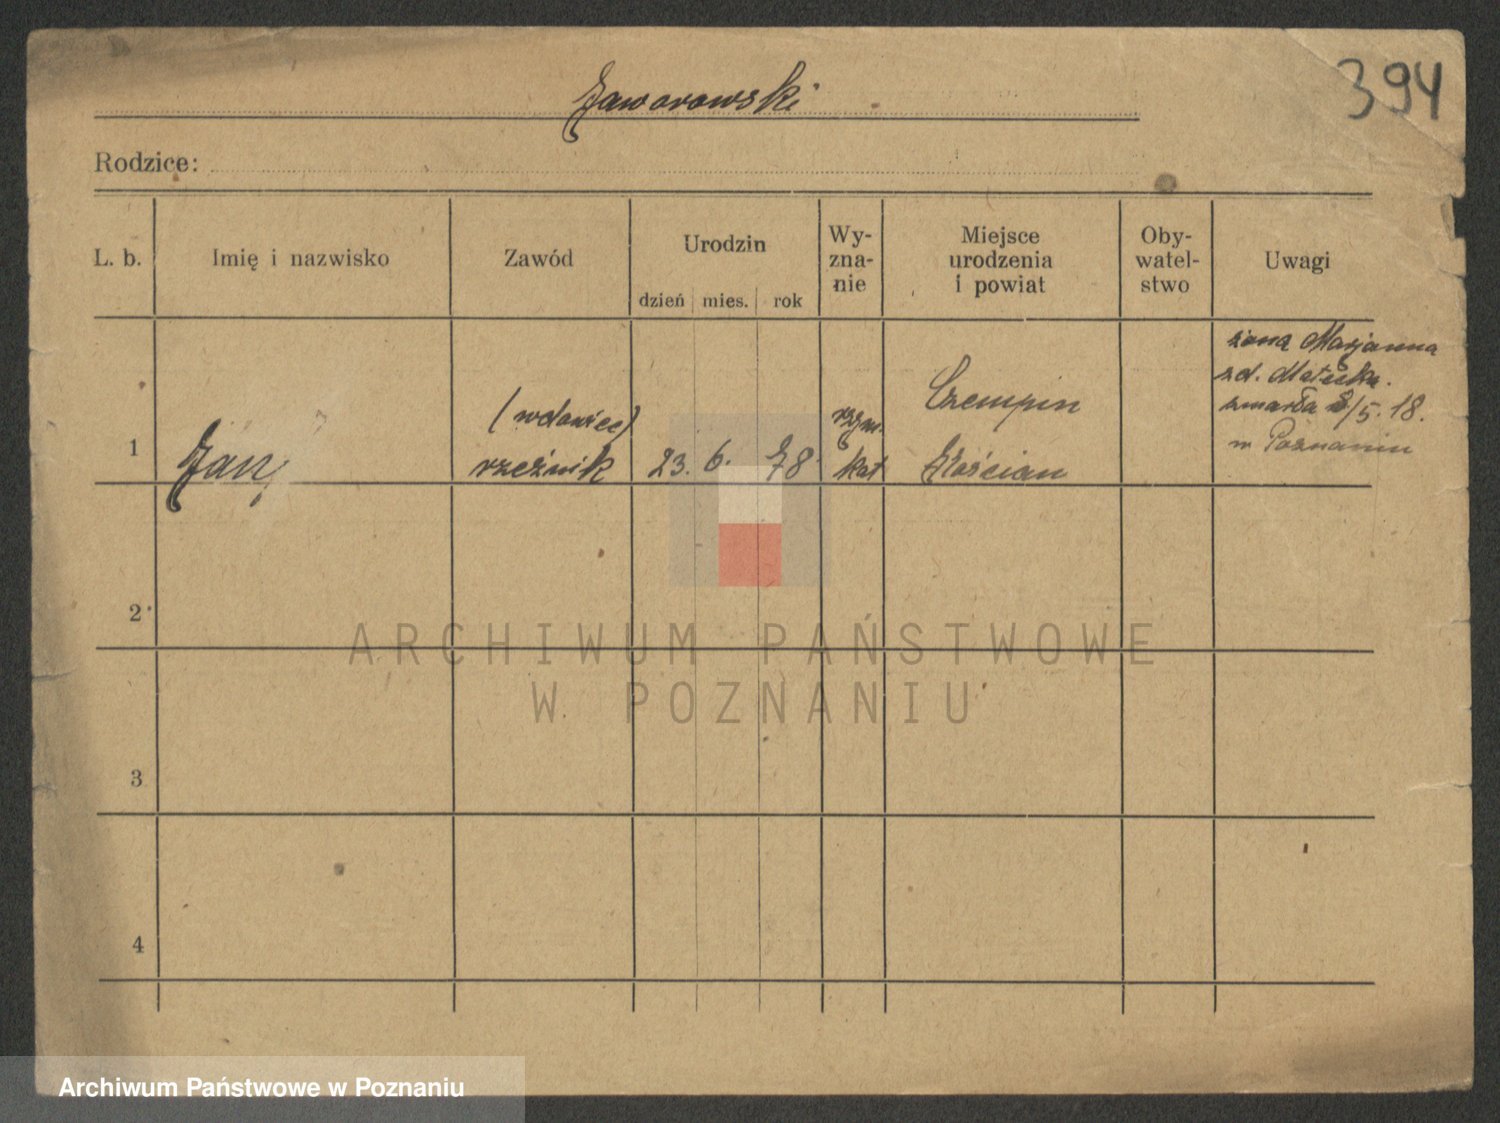 Jaworowski
394
Rodzice:
L. b.
Imię i nazwisko
Zawód
Urodzin
dzień
mies.
rok
Wy-
zna-
nie
Miejsce
urodzenia
i powiat
Oby-
watel-
stwo
Uwagi
1
Jan
(wdowiec)
rzeźnik
23.
6.
78
rzym.
kat
Czempin
Kościan
żona Marjanna
zd.
zmarła 8/5.18.
w Poznaniu
2
3
4
ARCHIWUM PAŃSTWOWE
W POZNANIU
Archiwum Państwowe w Poznaniu